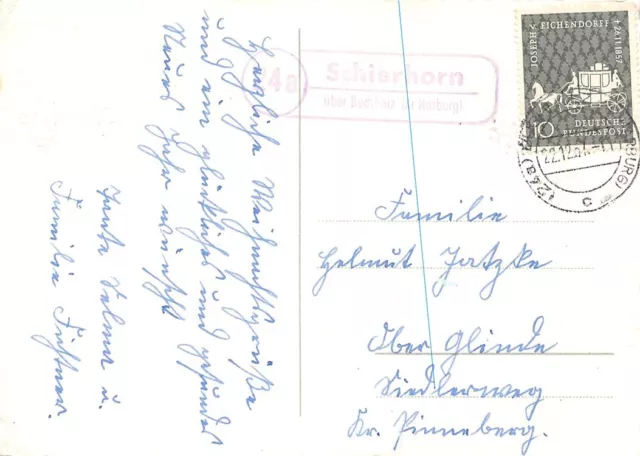 Herzliche Weihnachtsgrüße
und ein glückliches und gesundes
Neues Jahr wünscht
Tante Selma u.
Familie Fichtner.
24a
Schierhorn
über Buchholz (Kr Harburg)
JOSEPH v. EICHENDORFF + 26.11.1857
10 DEUTSCHE
BUNDESPOST
(24a) BURG)
22.12.57
c
Familie
Helmut Jatzke
Über Glinde
Siedlerweg
Kr. Pinneberg.